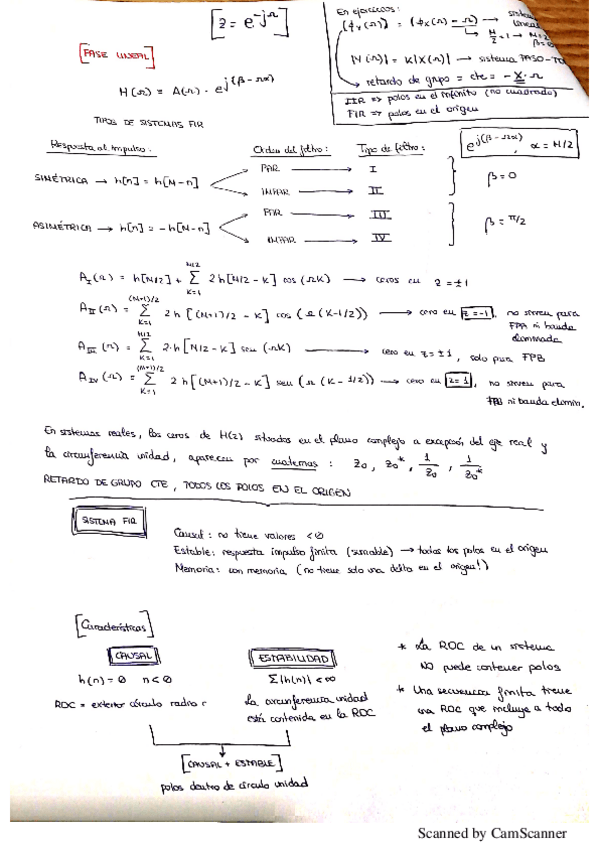 [z = e^-jΩ]
[FASE LINEAL]
H(Ω) = A(Ω) · e^j(β - Ωα)
En ejercicios:
|ϕx(Ω)| = |ϕx(Ω) - Ω) → sistema
→ M/2 = 1 → M=2
β=0
|Y(Ω)| = K|X(Ω)| → sistema PASO-TO
retardo de grupo = cte = - X · Ω
IIR => polos en el infinito (no cuadrado)
FIR => polos en el origen
TIPOS DE SISTEMAS FIR
Respuesta al impulso: Orden del filtro: Tipo de filtro:
e^j(β - Ωα), α = M/2
SIMÉTRICA → h[n] = h[M-n]
PAR → I
IMPAR → II
β = 0
ASIMÉTRICA → h[n] = - h[M-n]
PAR → III
IMPAR → IV
β = π/2
A_I(Ω) = h[M/2] + Σ_{K=1}^{M/2} 2h[M/2 - K] cos(ΩK) → ceros en z = ±1
A_II(Ω) = Σ_{K=1}^{(M+1)/2} 2h[(M+1)/2 - K] cos(Ω(K-1/2)) → cero en z=-1, no sirven para
FPA ni banda
eliminada
A_III(Ω) = Σ_{K=1}^{M/2} 2·h[M/2 - K] sen(ΩK) → cero en z = ±1, solo para FPB
A_IV(Ω) = Σ_{K=1}^{(M+1)/2} 2h[(M+1)/2 - K] sen(Ω(K - 1/2)) → cero en z=1, no sirven para
FPB ni banda elimin.
En sistemas reales, los ceros de H(z) situados en el plano complejo a excepción del eje real y
la circunferencia unidad, aparecen por cuaternas: z0, z0*, 1/z0, 1/z0*
RETARDO DE GRUPO CTE, TODOS LOS POLOS EN EL ORIGEN
SISTEMA FIR
Causal: no tiene valores <0
Estable: respuesta impulso finita (sumable) → todos los polos en el origen
Memoria: con memoria (no tiene solo una delta en el origen!)
[Características]
CAUSAL
h(n) = 0 n<0
ROC = exterior círculo radio r
ESTABILIDAD
Σ|h(n)| < ∞
La circunferencia unidad
está contenida en la ROC
* La ROC de un sistema
NO puede contener polos
* Una secuencia finita tiene
una ROC que incluye a todo
el plano complejo
[CAUSAL + ESTABLE]
polos dentro de círculo unidad
Scanned by CamScanner